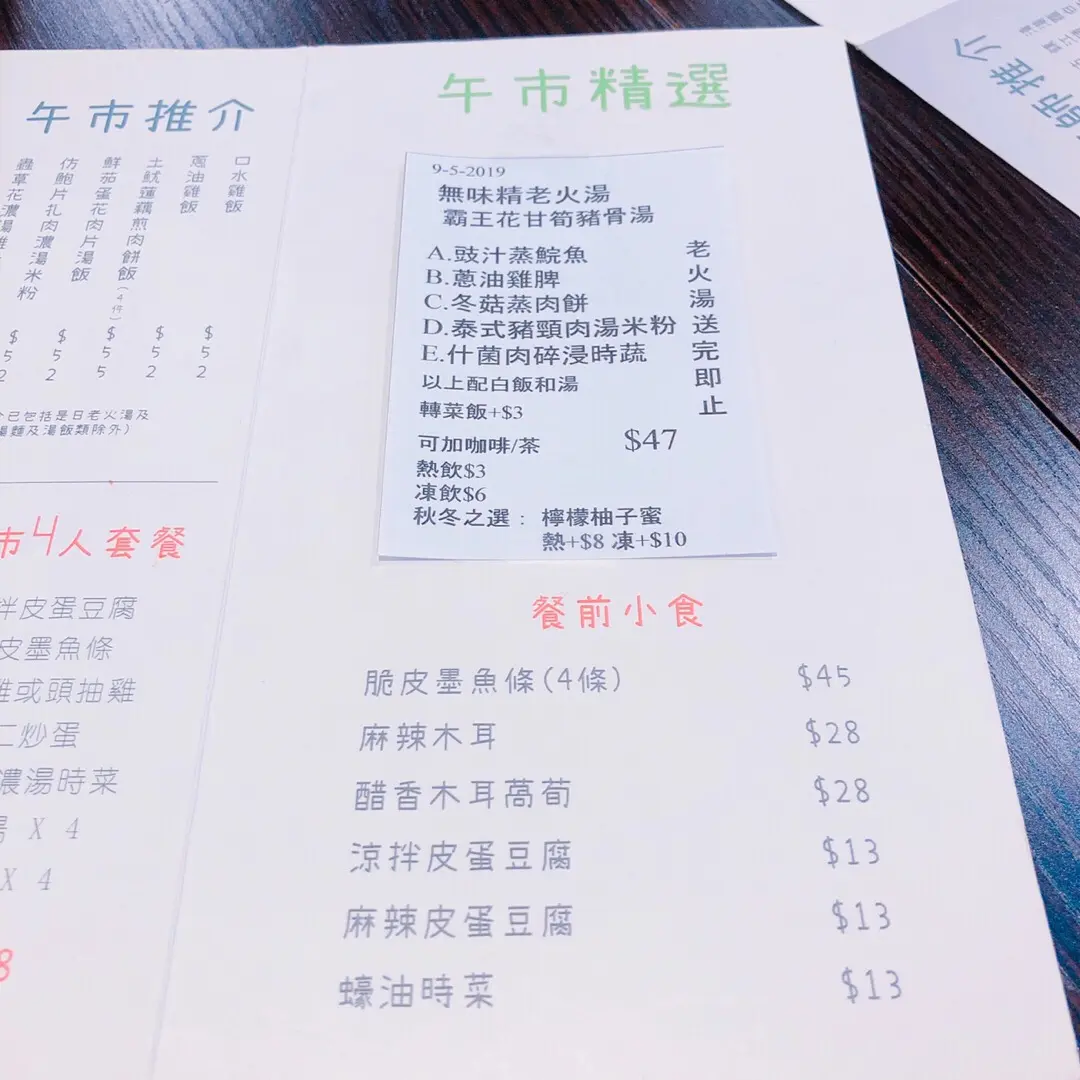 午市推介
口水雞飯
蔥油雞飯 $52
土魷蓮藕煎肉餅飯(4件) $52
鮮茄蛋花肉片湯飯 $55
仿鮑片扎肉濃湯米粉 $52
蟲草花濃湯
已包括是日老火湯及
湯麵及湯飯類除外)
市4人套餐
拌皮蛋豆腐
皮墨魚條
雞或頭抽雞
仁炒蛋
濃湯時菜
湯 X 4
X 4
8
午市精選
9-5-2019
無味精老火湯
霸王花甘筍豬骨湯
A.豉汁蒸鯇魚
B.蔥油雞脾
C.冬菇蒸肉餅
D.泰式豬頸肉湯米粉
E.什菌肉碎浸時蔬
老火湯送完即止
以上配白飯和湯
轉菜飯+$3
可加咖啡/茶 $47
熱飲$3
凍飲$6
秋冬之選： 檸檬柚子蜜
熱+$8 凍+$10
餐前小食
脆皮墨魚條(4條) $45
麻辣木耳 $28
醋香木耳萵荀 $28
涼拌皮蛋豆腐 $13
麻辣皮蛋豆腐 $13
蠔油時菜 $13
師推介